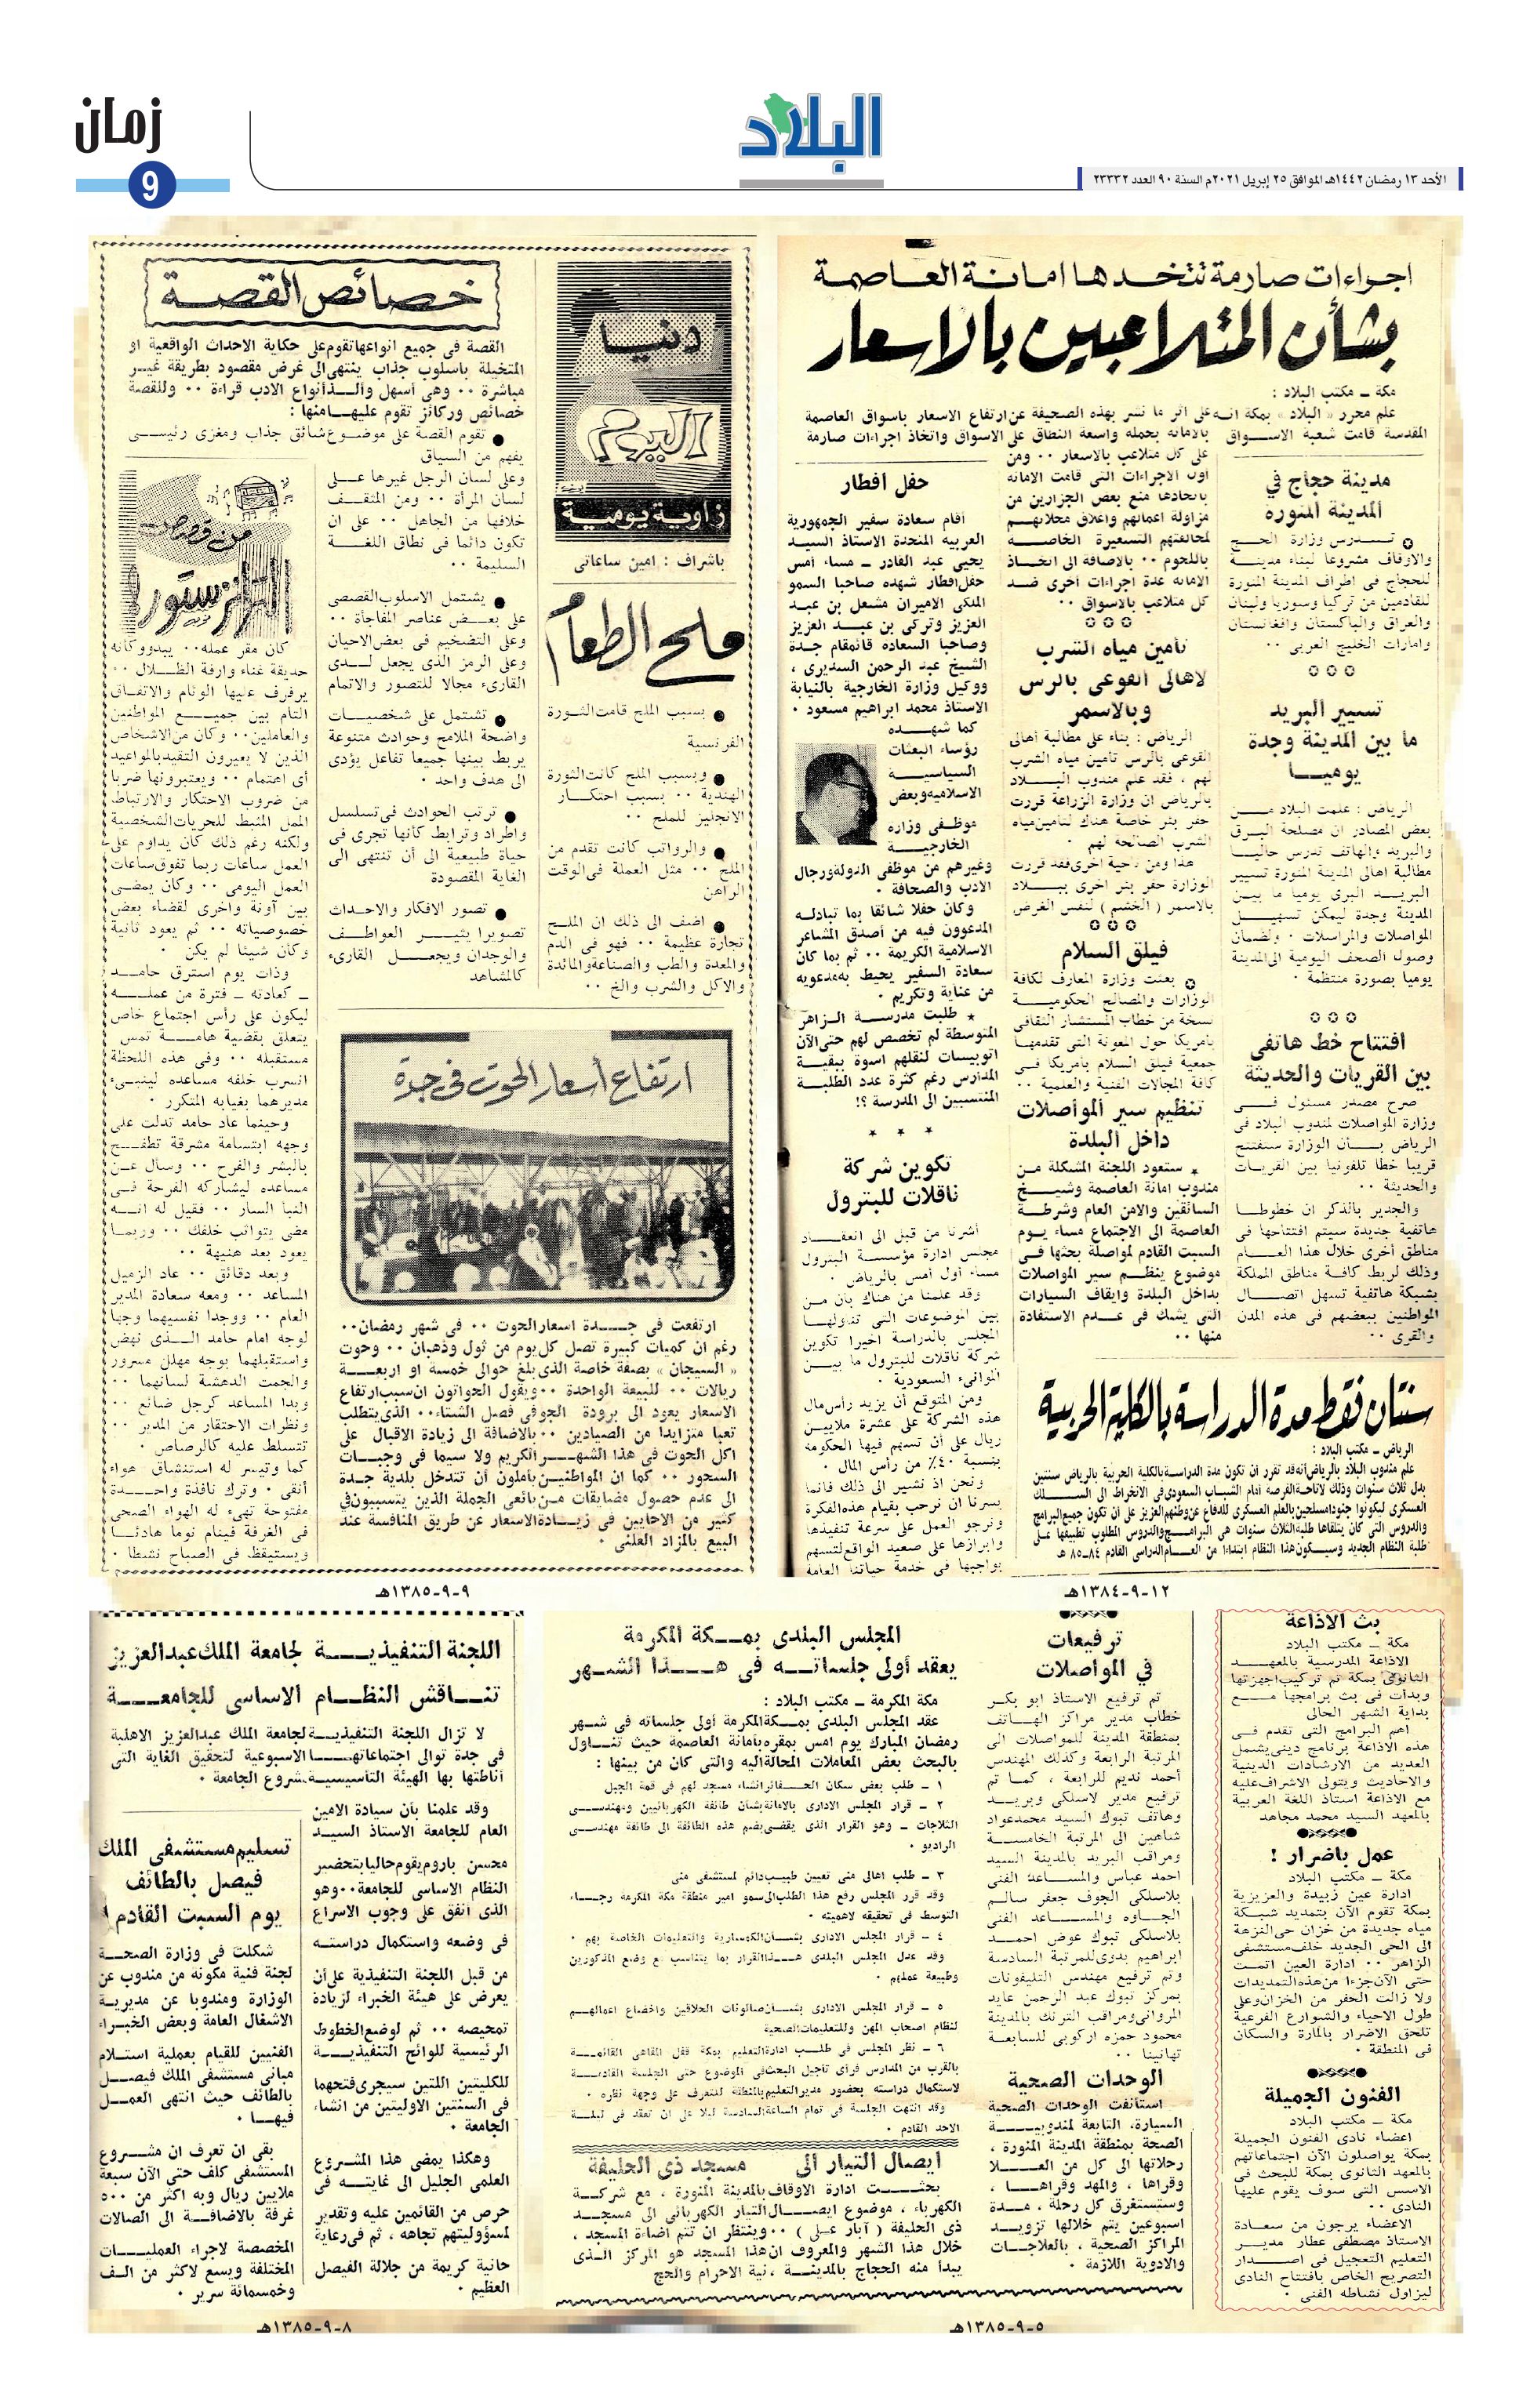 زمان
9
البلاد
الأحد ١٣ رمضان ١٤٤٢هـ الموافق ٢٥ إبريل ٢٠٢١م السنة ٩٠ العدد ٢٣٣٣٢
اجراءات صارمة تتخدها امانة العاصمة
بشأن المتلاعبين بالاسعار
مكة ــ مكتب البلاد :
علم محرر « البلاد » بمكة انه على اثر ما نشر بهذه الصحيفة عن ارتفاع الاسعار باسواق العاصمة
المقدسة قامت شعبة الاسواق بالامانة بحملة واسعة النطاق على الاسواق واتخاذ اجراءات صارمة
على كل متلاعب بالاسعار ٠٠ ومن
اول الاجراءات التى قامت الامانه
باتخاذها منع بعض الجزارين من
مزاولة اعمالهم واغلاق محلاتهم
لمخالفتهم التسعيرة الخاصة
باللحوم ٠٠ بالاضافة الى اتخاذ
الامانه عدة اجراءات أخرى ضد
كل متلاعب بالاسواق ٠٠
مدينة حجاج في
المدينة المنورة
تدرس وزارة الحج
والاوقاف مشروعا لبناء مدينة
للحجاج فى اطراف المدينة المنورة
للقادمين من تركيا وسوريا ولبنان
والعراق والباكستان وافغانستان
وامارات الخليج العربى ٠٠
تسيير البريد
ما بين المدينة وجدة
يوميا
الرياض : علمت البلاد من
بعض المصادر ان مصلحة البرق
والبريد والهاتف تدرس حاليا
مطالبة اهالى المدينة المنورة تسيير
البريد البرى يوميا ما بين
المدينة وجدة ليمكن تسهيل
المواصلات والمراسلات ٠ ولضمان
وصول الصحف اليومية الى المدينة
يوميا بصورة منتظمة ٠
افتتاح خط هاتفى
بين القريات والحديثة
صرح مصدر مسئول فى
وزارة المواصلات لمندوب البلاد فى
الرياض بأن الوزارة ستفتتح
قريبا خطا تلفونيا بين القريات
والحديثة ٠٠
والجدير بالذكر ان خطوطا
هاتفية جديدة سيتم افتتاحها فى
مناطق أخرى خلال هذا العام
وذلك لربط كافة مناطق المملكة
بشبكة هاتفية تسهل اتصال
المواطنين ببعضهم فى هذه المدن
والقرى ٠٠
تأمين مياه الشرب
لاهالى الفوعى بالرس
وبالاسمر
الرياض : بناء على مطالبة أهالى
الفوعى بالرس تأمين مياه الشرب
لهم ، فقد علم مندوب البلاد
بالرياض ان وزارة الزراعة قررت
حفر بئر خاصة هناك لتأمين مياه
الشرب الصالحة لهم ٠
هذا ومن ناحية اخرى فقد قررت
الوزارة حفر بئر اخرى ببلاد
بالاسمر ( الخشم ) لنفس الغرض
فيلق السلام
بعثت وزارة المعارف لكافة
الوزارات والمصالح الحكومية
نسخة من خطاب المستشار الثقافى
بأمريكا حول المعونة التى تقدمها
جمعية فيلق السلام بأمريكا فى
كافة المجالات الفنية والعلمية ٠٠
تنظيم سير المواصلات
داخل البلدة
ستعود اللجنة المشكلة من
مندوب امانة العاصمة وشيخ
السائقين والامن العام وشرطة
العاصمة الى الاجتماع مساء يوم
السبت القادم لمواصلة بحثها فى
موضوع ينظم سير المواصلات
بداخل البلدة وايقاف السيارات
التى يشك فى عدم الاستفادة
منها ٠٠
حفل افطار
أقام سعادة سفير الجمهورية
العربيه المتحدة الاستاذ السيد
يحيى عبد القادر ــ مساء أمس
حفل افطار شهده صاحبا السمو
الملكى الاميران مشعل بن عبد
العزيز وتركى بن عبد العزيز
وصاحبا السعاده قائمقام جدة
الشيخ عبد الرحمن السديرى ،
ووكيل وزارة الخارجية بالنيابة
الاستاذ محمد ابراهيم مسعود ٠
كما شهده
رؤساء البعثات
السياسية
الاسلاميه وبعض
موظفى وزارة
الخارجية
وغيرهم من موظفى الدولة ورجال
الادب والصحافة ٠
وكان حفلا شائقا بما تبادله
المدعوون فيه من أصدق المشاعر
الاسلامية الكريمة ٠٠ ثم بما كان
سعادة السفير يحيط به مدعويه
من عناية وتكريم ٠
طلبت مدرسة الزاهر
المتوسطة لم تخصص لهم حتى الآن
اتوبيسات لنقلهم اسوة ببقية
المدارس رغم كثرة عدد الطلبة
المنتسبين الى المدرسة ؟!
تكوين شركة
ناقلات للبترول
أشرنا من قبل الى انعقاد
مجلس ادارة مؤسسة البترول
مساء أول أمس بالرياض ٠
وقد علمنا من هناك بأن من
بين الموضوعات التى تناولها
المجلس بالدراسة اخيرا تكوين
شركة ناقلات للبترول ما بين
الموانىء السعودية ٠
ومن المتوقع أن يزيد رأس مال
هذه الشركة على عشرة ملايين
ريال على أن تسهم فيها الحكومة
بنسبة ٤٠٪ من رأس المال ٠
ونحن اذ نشير الى ذلك فانما
يسرنا ان نرحب بقيام هذه الفكرة
ونرجو العمل على سرعة تنفيذها
وابرازها على صعيد الواقع لتسهم
بواجبها فى خدمة حياتنا العامة
سنتان فقط مدة الدراسة بالكلية الحربية
الرياض ــ مكتب البلاد :
علم مندوب البلاد بالرياض أنه قد تقرر ان تكون مدة الدراسة بالكلية الحربية بالرياض سنتين
بدل ثلاث سنوات وذلك لاتاحة الفرصة أمام الشباب السعودى فى الانخراط الى السلك
العسكرى ليكونوا جنودا مسلحين بالعلم العسكرى للدفاع عن وطنهم العزيز على ان تكون جميع البرامج
والدروس التى كان يتلقاها طلبة الثلاث سنوات هى البرامج والدروس المطلوب تطبيقها على
طلبة النظام الجديد وسيكون هذا النظام ابتداءا من العام الدراسى القادم ٨٤ــ٨٥ هـ
١٢-٩-١٣٨٤هـ
دنيا
اليوم
زاوية يومية
باشراف : امين ساعاتى
ملح الطعام
بسبب الملح قامت الثورة
الفرنسية
وبسبب الملح كانت الثورة
الهندية ٠٠ بسبب احتكار
الانجليز للملح ٠٠
والرواتب كانت تقدم من
الملح ٠٠ مثل العملة فى الوقت
الراهن
اضف الى ذلك ان الملح
تجارة عظيمة ٠٠ فهو فى الدم
والمعدة والطب والصناعة والمائدة
والاكل والشرب والخ ٠٠
خصائص القصة
القصة فى جميع انواعها تقوم على حكاية الاحداث الواقعية او
المتخيلة باسلوب جذاب ينتهى الى غرض مقصود بطريقة غير
مباشرة ٠٠ وهى أسهل وألذ أنواع الادب قراءة ٠٠ وللقصة
خصائص وركائز تقوم عليها منها :
تقوم القصة على موضوع شائق جذاب ومغزى رئيسى
يفهم من السياق
وعلى لسان الرجل غيرها على
لسان المرأة ٠٠ ومن المثقف
خلافها من الجاهل ٠٠ على ان
تكون دائما فى نطاق اللغة
السليمة ٠٠
يشتمل الاسلوب القصصى
على بعض عناصر المفاجأة ٠٠
وعلى التضخيم فى بعض الاحيان
وعلى الرمز الذى يجعل لدى
القارىء مجالا للتصور والاتمام
تشتمل على شخصيات
واضحة الملامح وحوادث متنوعة
يربط بينها جميعا تفاعل يؤدى
الى هدف واحد ٠
ترتب الحوادث فى تسلسل
واطراد وترابط كأنها تجرى فى
حياة طبيعية الى أن تنتهى الى
الغاية المقصودة
تصور الافكار والاحداث
تصويرا يثير العواطف
والوجدان ويجعل القارىء
كالمشاهد
من قصص
الترانزستور
كان مقر عمله ٠٠ يبدو وكأنه
حديقة غناء وارفة الظلال ٠٠
يرفرف عليها الوئام والاتفاق
التام بين جميع المواطنين
والعاملين ٠٠ وكان من الاشخاص
الذين لا يعيرون التقيد بالمواعيد
أى اهتمام ٠٠ ويعتبرونها ضربا
من ضروب الاحتكار والارتباط
الممل المثبط للحريات الشخصية
ولكنه رغم ذلك كان يداوم على
العمل ساعات ربما تفوق ساعات
العمل اليومى ٠٠ وكان يمضى
بين آونة واخرى لقضاء بعض
خصوصياته ٠٠ ثم يعود ثانية
وكأن شيئا لم يكن ٠
وذات يوم استرق حامد
ــ كعادته ــ فترة من عمله
ليكون على رأس اجتماع خاص
يتعلق بقضية هامة تمس
مستقبله ٠٠ وفى هذه اللحظة
انسرب خلفه مساعده لينبىء
مديرهما بغيابه المتكرر ٠
وحينما عاد حامد تدلت على
وجهه ابتسامة مشرقة تطفح
بالبشر والفرح ٠٠ وسأل عن
مساعده ليشاركه الفرحة فى
النبأ السار ٠٠ فقيل له انه
مضى يتواثب خلفك ٠٠ وربما
يعود بعد هنيهة ٠٠
وبعد دقائق ٠٠ عاد الزميل
المساعد ٠٠ ومعه سعادة المدير
العام ٠٠ ووجدا نفسيهما وجها
لوجه امام حامد الذى نهض
واستقبلهما بوجه مهلل مسرور
والجمت الدهشة لسانهما ٠٠
وبدا المساعد كرجل ضائع ٠٠
ونظرات الاحتقار من المدير ٠٠
تتسلط عليه كالرصاص ٠
كما وتيسر له استنشاق هواء
أنقى ٠ وترك نافذة واحدة
مفتوحة تهىء له الهواء الصحى
فى الغرفة فينام نوما هادئا
ويستيقظ فى الصباح نشطا ٠
ارتفاع أسعار الحوت فى جدة
ارتفعت فى جدة اسعار الحوت ٠٠ فى شهر رمضان ٠٠
رغم ان كميات كبيرة تصل كل يوم من ثول وذهبان ٠٠ وحوت
« السيجان » بصفة خاصة الذى بلغ حوالى خمسة او اربعة
ريالات ٠٠ للبيعة الواحدة ٠٠ ويقول الحواتون ان سبب ارتفاع
الاسعار يعود الى برودة الجو فى فصل الشتاء ٠٠ الذى يتطلب
تعبا متزايدا من الصيادين ٠٠ بالاضافة الى زيادة الاقبال على
اكل الحوت فى هذا الشهر الكريم ولا سيما فى وجبات
السحور ٠٠ كما ان المواطنين يأملون أن تتدخل بلدية جدة
الى عدم حصول مضايقات من بائعى الجملة الذين يتسببون فى
كثير من الاحايين فى زيادة الاسعار عن طريق المنافسة عند
البيع بالمزاد العلنى ٠
٩-٩-١٣٨٥هـ
بث الاذاعة
مكة ــ مكتب البلاد
الاذاعة المدرسية بالمعهد
الثانوى بمكة تم تركيب اجهزتها
وبدأت فى بث برامجها مع
بداية الشهر الحالى
اهم البرامج التى تقدم فى
هذه الاذاعة برنامج دينى يشمل
العديد من الارشادات الدينية
والاحاديث ويتولى الاشراف عليه
مع الاذاعة استاذ اللغة العربية
بالمعهد السيد محمد مجاهد
عمل باضرار !
مكة ــ مكتب البلاد
ادارة عين زبيدة والعزيزية
بمكة تقوم الآن بتمديد شبكة
مياه جديدة من خزان حى النزهة
الى الحى الجديد خلف مستشفى
الزاهر ٠٠ ادارة العين اتمت
حتى الآن جزءا من هذه التمديدات
ولا زالت الحفر من الخزان وعلى
طول الاحياء والشوارع الفرعية
تلحق الاضرار بالمارة والسكان
فى المنطقة ٠
الفنون الجميلة
مكة ــ مكتب البلاد
اعضاء نادى الفنون الجميلة
بمكة يواصلون الآن اجتماعاتهم
بالمعهد الثانوى بمكة للبحث فى
الاسس التى سوف يقوم عليها
النادى ٠٠
الاعضاء يرجون من سعادة
الاستاذ مصطفى عطار مدير
التعليم التعجيل فى اصدار
التصريح الخاص بافتتاح النادى
ليزاول نشاطه الفنى ٠
ترفيعات
في المواصلات
تم ترفيع الاستاذ ابو بكر
خطاب مدير مراكز الهاتف
بمنطقة المدينة للمواصلات الى
المرتبة الرابعة وكذلك المهندس
أحمد نديم للرابعة ، كما تم
ترفيع مدير لاسلكى وبريد
وهاتف تبوك السيد محمد عواد
شاهين الى المرتبة الخامسة
ومراقب البريد بالمدينة السيد
احمد عباس والمساعد الفنى
بلاسلكى الجوف جعفر سالم
الجاوه والمساعد الفنى
بلاسلكى تبوك عوض احمد
ابراهيم بدوى للمرتبة السادسة
وتم ترفيع مهندس التليفونات
بمركز تبوك عبد الرحمن عايد
المروانى ومراقب الترنك بالمدينة
محمود حمزه اركوبى للسابعة
تهانينا ٠٠
الوحدات الصحية
استأنفت الوحدات الصحية
السيارة، التابعة لمندوبية
الصحة بمنطقة المدينة المنورة ،
رحلاتها الى كل من العلا
وقراها ، والمهد وقراها ،
وستستغرق كل رحلة ، مدة
اسبوعين يتم خلالها تزويد
المراكز الصحية ، بالعلاجات
والادوية اللازمة ٠
المجلس البلدى بمكة المكرمة
يعقد أولى جلساته فى هذا الشهر
مكة المكرمة ــ مكتب البلاد :
عقد المجلس البلدى بمكة المكرمة أولى جلساته فى شهر
رمضان المبارك يوم امس بمقره بأمانة العاصمة حيث تناول
بالبحث بعض المعاملات المحالة اليه والتى كان من بينها :
١ ــ طلب بعض سكان الحفائر انشاء مسجد لهم فى قمة الجبل
٢ ــ قرار المجلس الادارى بالامانة بشأن طائفة الكهربائيين ومهندسى
الثلاجات ــ وهو القرار الذى يقضى بضم هذه الطائفة الى طائفة مهندسى
الراديو ٠
٣ ــ طلب اهالى منى تعيين طبيب دائم لمستشفى منى
وقد قرر المجلس رفع هذا الطلب الى سمو امير منطقة مكة المكرمة رجاء
التوسط فى تحقيقه لاهميته ٠
٤ ــ قرار المجلس الادارى بشأن الكمسارية والتعليمات الخاصة بهم ٠
وقد عدل المجلس البلدى هذا القرار بما يتناسب مع وضع المذكورين
وطبيعة عملهم ٠
٥ ــ قرار المجلس الادارى بشأن صالونات الحلاقين واخضاع اعمالهم
لنظام اصحاب المهن وللتعليمات الصحية
٦ ــ نظر المجلس فى طلب ادارة التعليم بمكة قفل المقاهى القائمة
بالقرب من المدارس فرأى تأجيل البحث فى الموضوع حتى الجلسة القادمة
لاستكمال دراسته بحضور مدير التعليم بالمنطقة للتعرف على وجهة نظره ٠
وقد انتهت الجلسة فى تمام الساعة السادسة ليلا على ان تعقد فى ليلة
الاحد القادم ٠
ايصال التيار الى مسجد ذى الحليفة
بحثت ادارة الاوقاف بالمدينة المنورة ، مع شركة
الكهرباء ، موضوع ايصال التيار الكهربائى الى مسجد
ذى الحليفة ( آبار على ) ٠٠ وينتظر ان تتم اضاءة المسجد ،
خلال هذا الشهر والمعروف ان هذا المسجد هو المركز الذى
يبدأ منه الحجاج بالمدينة ، نية الاحرام والحج
٥-٩-١٣٨٥هـ
اللجنة التنفيذية لجامعة الملك عبد العزيز
تناقش النظام الاساسى للجامعة
لا تزال اللجنة التنفيذية لجامعة الملك عبدالعزيز الاهلية
فى جدة توالى اجتماعاتها الاسبوعية لتحقيق الغاية التى
أناطتها بها الهيئة التأسيسية لمشروع الجامعة ٠
وقد علمنا بأن سيادة الامين
العام للجامعة الاستاذ السيد
محسن باروم يقوم حاليا بتحضير
النظام الاساسى للجامعة ٠٠ وهو
الذى اتفق على وجوب الاسراع
فى وضعه واستكمال دراسته
من قبل اللجنة التنفيذية على أن
يعرض على هيئة الخبراء لزيادة
تمحيصه ٠٠ ثم لوضع الخطوط
الرئيسية للوائح التنفيذية
للكليتين اللتين سيجرى فتحهما
فى السنتين الاوليتين من انشاء
الجامعة ٠
وهكذا يمضى هذا المشروع
العلمى الجليل الى غايته فى
حرص من القائمين عليه وتقدير
لمسؤوليتهم تجاهه ، ثم فى رعاية
حانية كريمة من جلالة الفيصل
العظيم ٠
تسليم مستشفى الملك
فيصل بالطائف
يوم السبت القادم
شكلت فى وزارة الصحة
لجنة فنية مكونه من مندوب عن
الوزارة ومندوبا عن مديرية
الاشغال العامة وبعض الخبراء
الفنيين للقيام بعملية استلام
مبانى مستشفى الملك فيصل
بالطائف حيث انتهى العمل
فيها ٠
بقى ان تعرف ان مشروع
المستشفى كلف حتى الآن سبعة
ملايين ريال وبه اكثر من ٥٠٠
غرفة بالاضافة الى الصالات
المخصصة لاجراء العمليات
المختلفة ويسع لاكثر من الف
وخمسمائة سرير ٠
٨-٩-١٣٨٥هـ